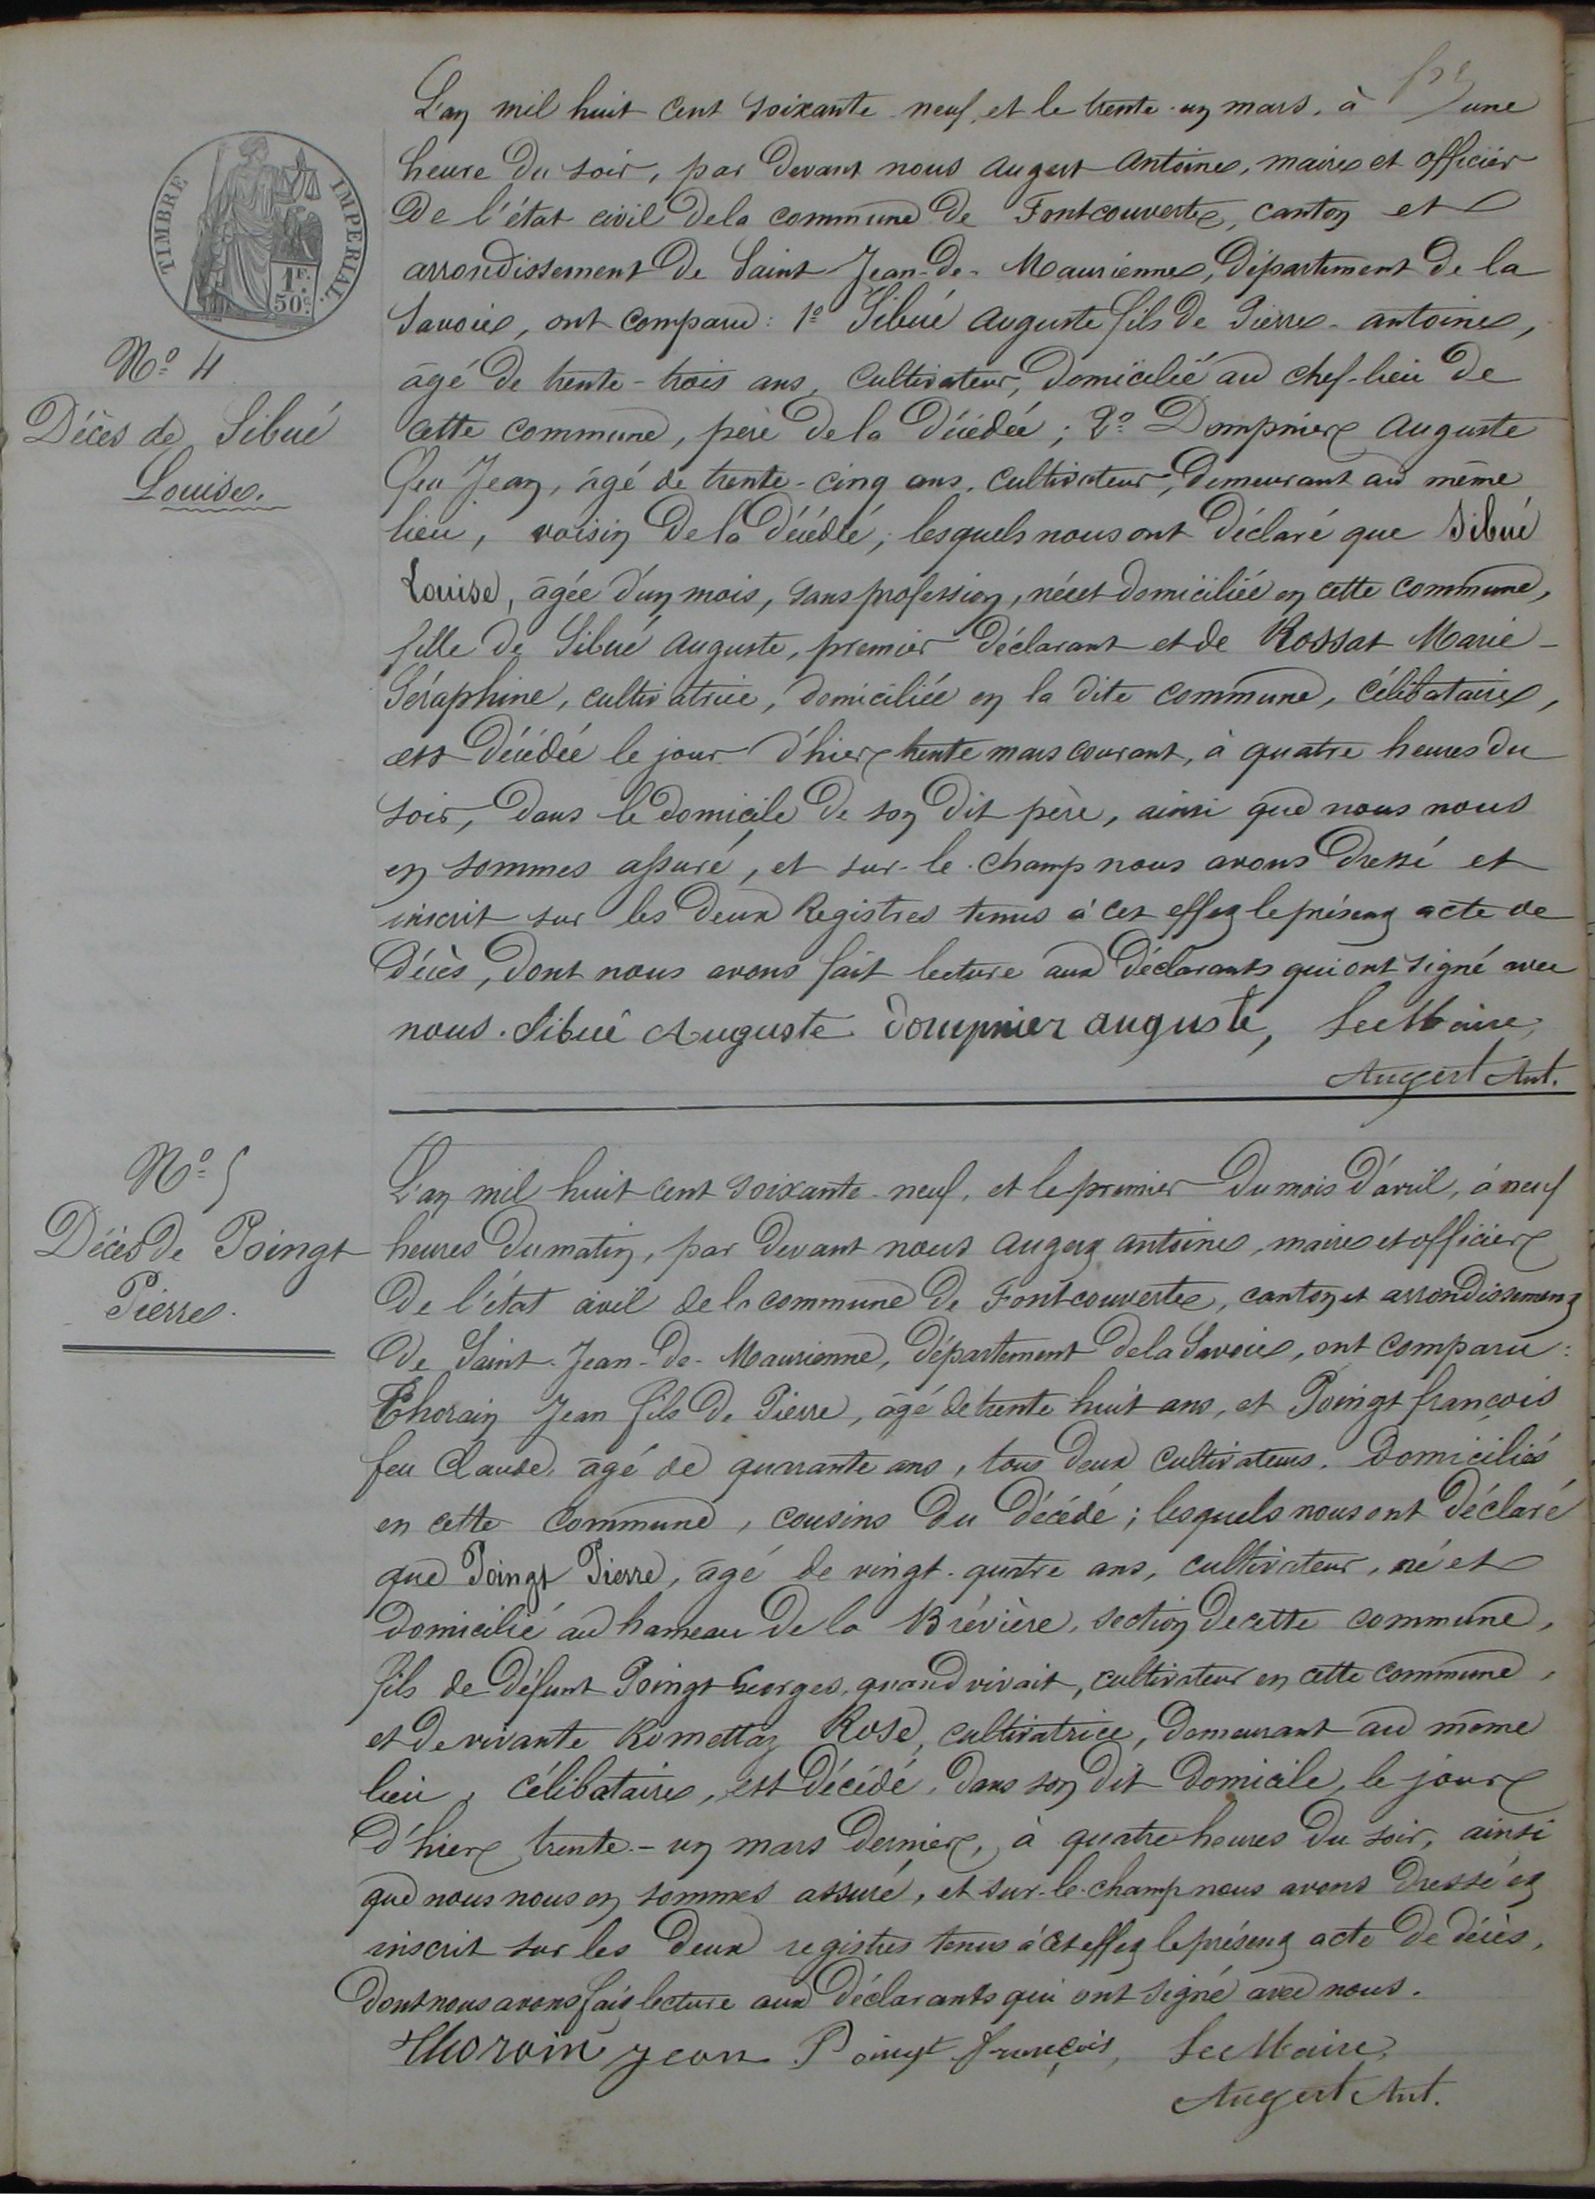 TIMBRE IMPERIAL.
1F. 50c.
L'an mil huit cent soixante-neuf, et le trente-un mars, à une
heure du soir, par devant nous Augert Antoine, maire et officier
De l'état civil de la commune de Fontcouverte, canton et
arrondissement de Saint-Jean-de-Maurienne, Département de la
Savoie, ont comparu: 1º Sibué Auguste fils de Pierre-antoine,
âgé de trente-trois ans, cultivateur, domicilié au chef-lieu de
cette commune, père de la décédée; 2º Dompnier Auguste
feu Jean, âgé de trente-cinq ans, cultivateur, demeurant au même
lieu, voisin de la décédée, lesquels nous ont déclaré que Sibué
Louise, âgée d'un mois, sans profession, née et domiciliée en cette commune,
fille de Sibué Auguste, premier déclarant et de Rossat Marie-
Séraphine, cultivatrice, domiciliée en la dite commune, célibataire,
est décédée le jour d'hier trente mars courant, à quatre heures du
soir, dans le domicile de son dit père, ainsi que nous nous
en sommes assuré, et sur-le-champ nous avons dressé et
inscrit sur les deux Registres tenus à cet effet le présent acte de
Décès, dont nous avons fait lecture aux déclarants qui ont signé avec
nous. Sibué Auguste Dompnier auguste, Le Maire,
Augert Ant.
Nº 4
Décès de Sibué
Louise.
Nº 5
Décès de Poingt
Pierre.
L'an mil huit cent soixante-neuf, et le premier du mois d'avril, à neuf
heures du matin, par devant nous Augert antoine, maire et officier
De l'état civil de la commune de Fontcouverte, canton et arrondissement
de Saint-Jean-de-Maurienne, département de la Savoie, ont comparu:
Thorain Jean fils de Pierre, âgé de trente huit ans, et Poingt françois
feu Claude, âgé de quarante ans, tous deux cultivateurs, domiciliés
en cette commune, cousins du décédé; lesquels nous ont déclaré
que Poingt Pierre, âgé de vingt-quatre ans, cultivateur, né et
domicilié au hameau de la Brévière, section de cette commune,
fils de défunt Poingt Georges, quand vivait, cultivateur en cette commune,
et de vivante Romettaz Rose, cultivatrice, demeurant au même
lieu, célibataire, est décédé, dans son dit domicile, le jour
d'hier trente-un mars dernier, à quatre heures du soir, ainsi
que nous nous en sommes assuré, et sur-le-champ nous avons dressé et
inscrit sur les deux registres tenus à cet effet le présent acte de décès,
dont nous avons fait lecture aux déclarants qui ont signé avec nous.
Thorain Jean Poingt françois, Le Maire,
Augert Ant.